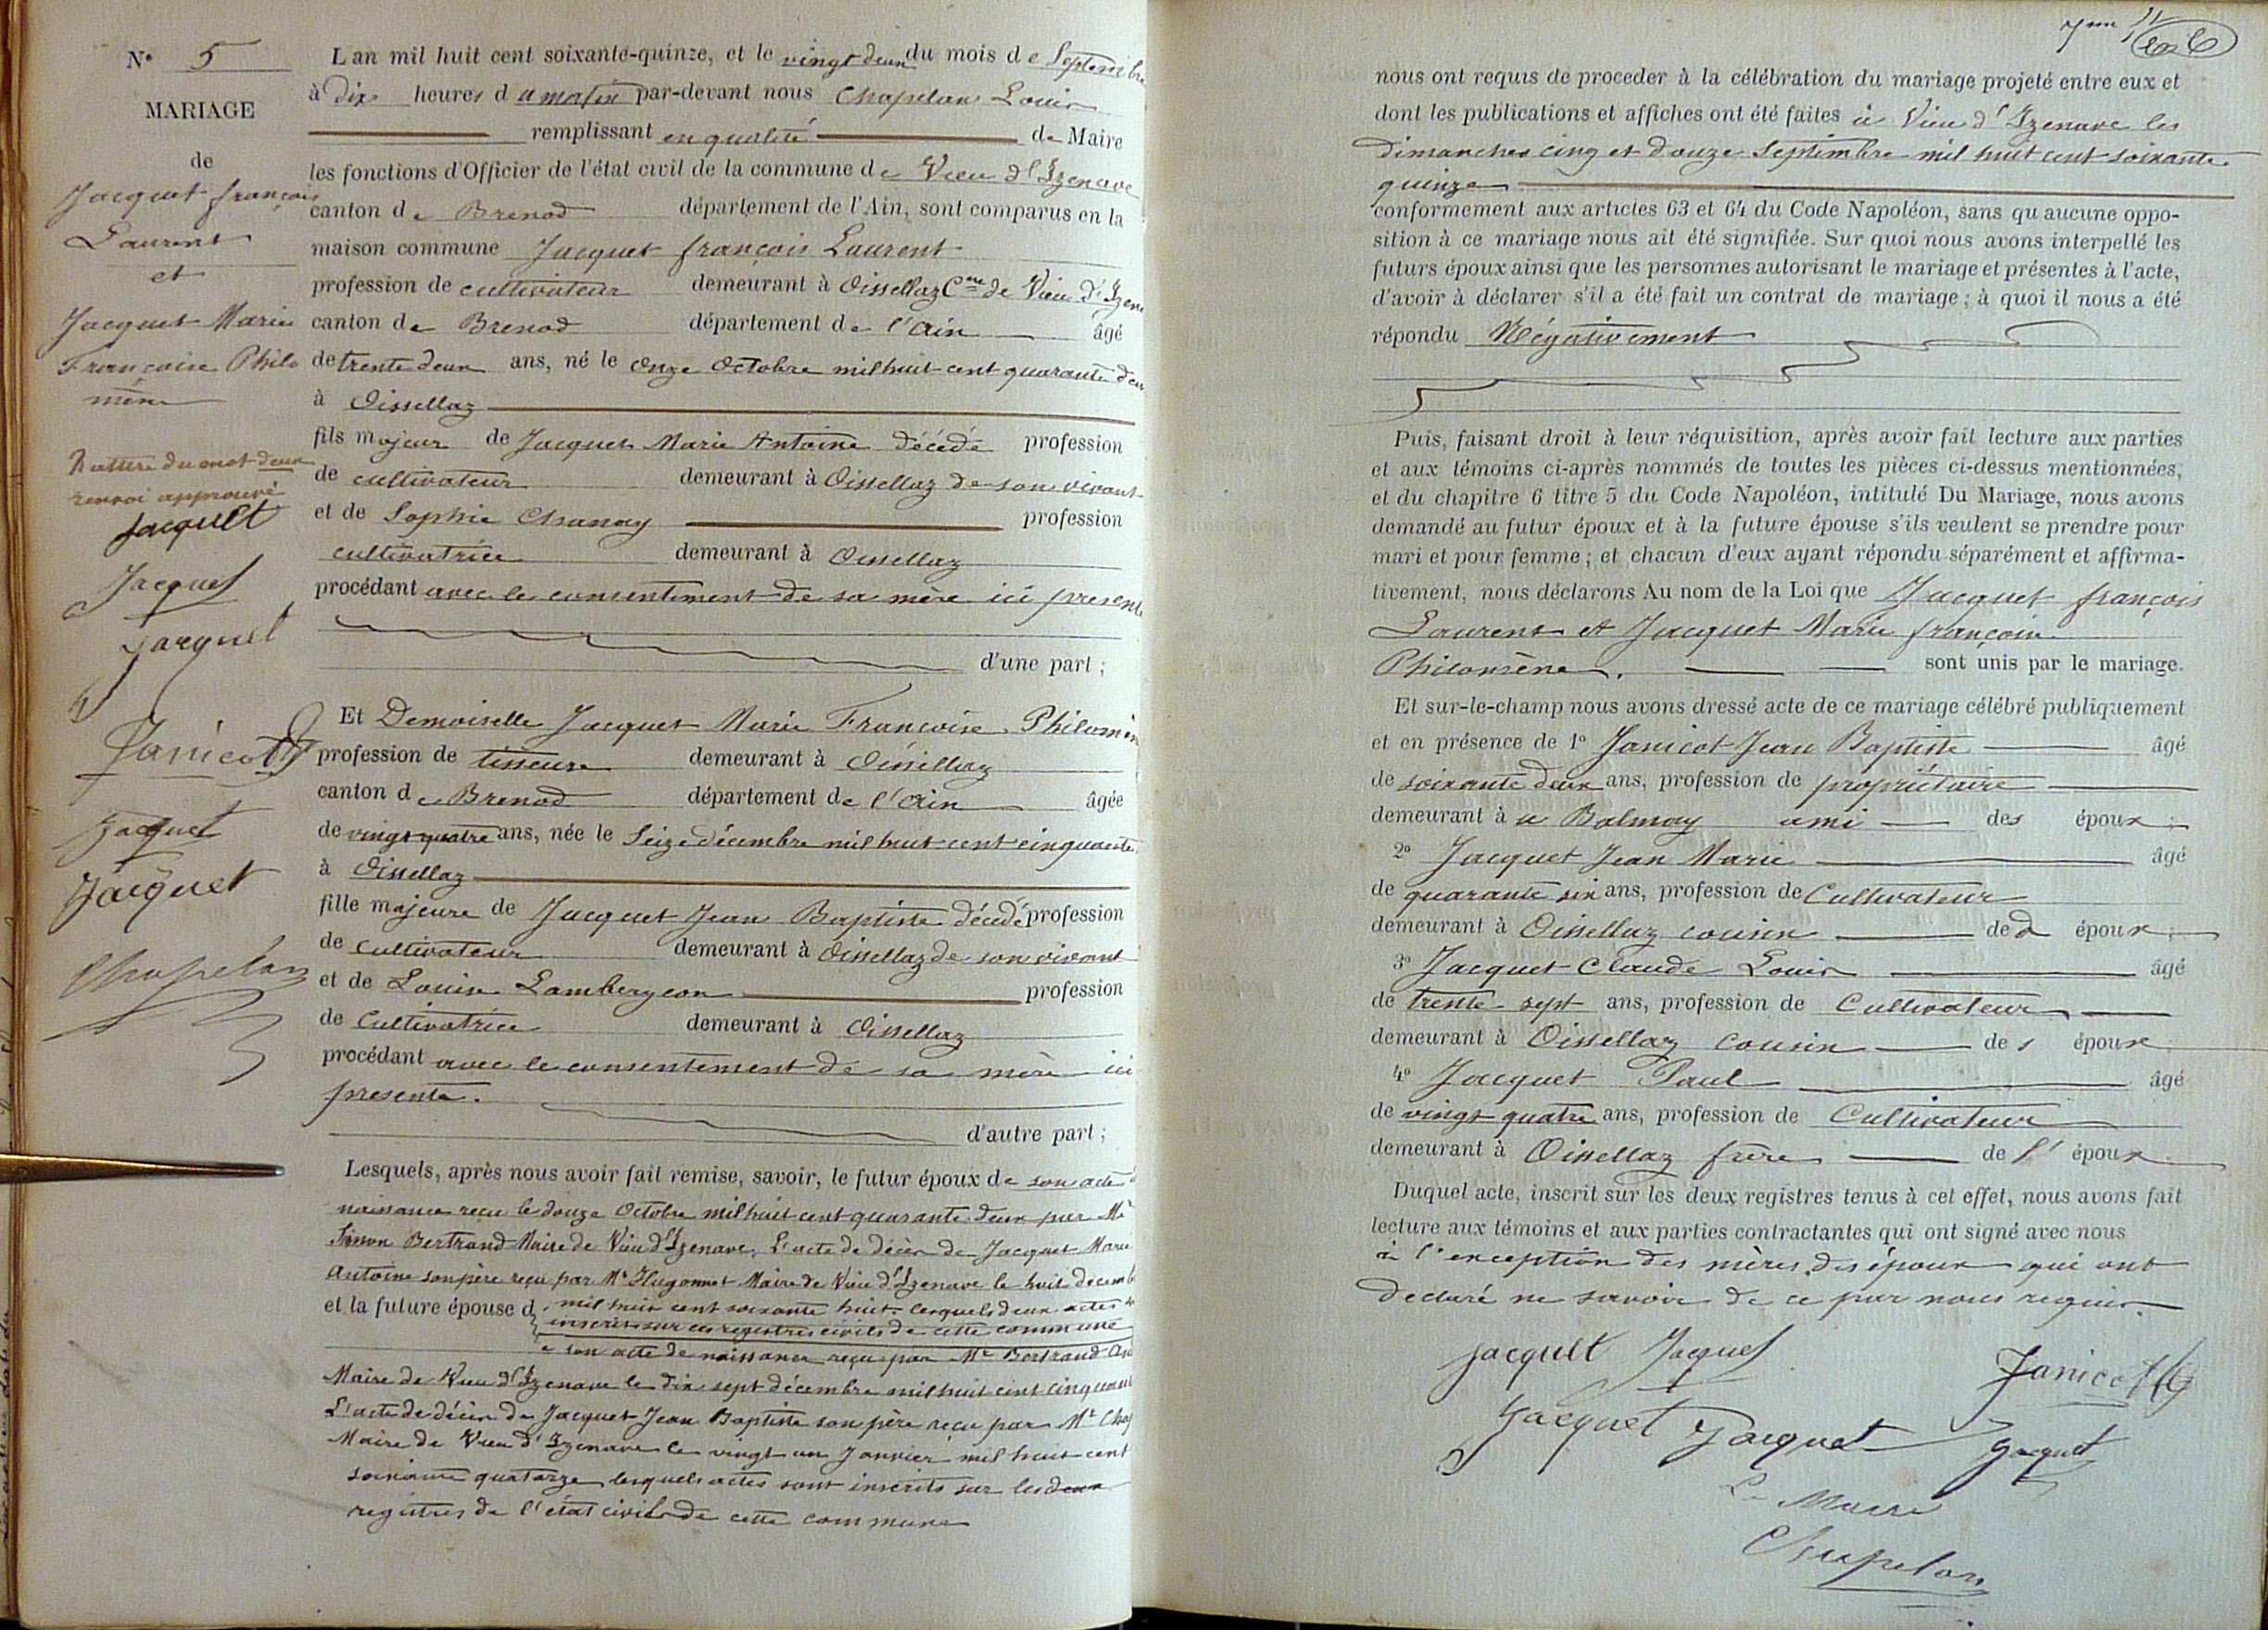 N° 5
MARIAGE
de
Jacquet françois
Laurent
et
Jacquet Marie
Françoise Philo
mène
du mot deux
renvoi approuvé
Jacquet
Jacquet
Jacquet
Janicot
Jacquet
Jacquet
Chapelan
L'an mil huit cent soixante-quinze, et le vingt deux du mois de Septembre
à dix heures du matin par-devant nous Chapelan Louis
remplissant en qualité de Maire
les fonctions d'Officier de l'état civil de la commune de Vieu d'Izenave
canton de Brenod département de l'Ain, sont comparus en la
maison commune Jacquet françois Laurent
profession de cultivateur demeurant à Oissellaz Cne de Vieu d'Izen
canton de Brenod département de l'Ain âgé
de trente deux ans, né le onze Octobre mil huit cent quarante deux
à Oissellaz
fils majeur de Jacquet Marie Antoine décédé profession
de cultivateur demeurant à Oissellaz de son vivant
et de Sophie Chanay profession
cultivatrice demeurant à Oissellaz
procédant avec le consentement de sa mère ici présente
d'une part ;
Et Demoiselle Jacquet Marie Françoise Philomèn
profession de tisseuse demeurant à Oissellaz
canton de Brenod département de l'Ain âgée
de vingt quatre ans, née le Seize décembre mil huit cent cinquante
à Oissellaz
fille majeure de Jacquet Jean Baptiste décédé profession
de cultivateur demeurant à Oissellaz de son vivant
et de Louise Lambergeon profession
de Cultivatrice demeurant à Oissellaz
procédant avec le consentement de sa mère ici
presente.
d'autre part ;
Lesquels, après nous avoir fait remise, savoir, le futur époux de son acte d
naissance reçu le douze Octobre mil huit cent quarante deux par Mr
Simon Bertrand Maire de Vieu d'Izenave, L'acte de décès de Jacquet Marie
Antoine son père reçu par Mr Hugonnet Maire de Vieu d'Izenave le huit decemb
mil huit cent soixante huit lesquels deux actes
inscrits sur les registres civils de cette commune
et la future épouse de son acte de naissance reçu par Mr Bertrand
Maire de Vieu d'Izenave le dix sept décembre mil huit cent cinquant
L'acte de décès de Jacquet Jean Baptiste son père reçu par Mr Chap
Maire de Vieu d'Izenave le vingt un Janvier mil huit cent
soixante quatorze lesquels actes sont inscrits sur les deux
registres de l'état civil de cette commune
nous ont requis de proceder à la célébration du mariage projeté entre eux et
dont les publications et affiches ont été faites à Vieu d'Izenave les
Dimanches cinq et douze Septembre mil huit cent soixante
quinze
conformement aux articles 63 et 64 du Code Napoléon, sans qu'aucune oppo-
sition à ce mariage nous ait été signifiée. Sur quoi nous avons interpellé les
futurs époux ainsi que les personnes autorisant le mariage et présentes à l'acte,
d'avoir à déclarer s'il a été fait un contrat de mariage ; à quoi il nous a été
répondu Négativement
Puis, faisant droit à leur réquisition, après avoir fait lecture aux parties
et aux témoins ci-après nommés de toutes les pièces ci-dessus mentionnées,
et du chapitre 6 titre 5 du Code Napoléon, intitulé Du Mariage, nous avons
demandé au futur époux et à la future épouse s'ils veulent se prendre pour
mari et pour femme ; et chacun d'eux ayant répondu séparément et affirma-
tivement, nous déclarons Au nom de la Loi que Jacquet françois
Laurent et Jacquet Marie françoise
Philomène. sont unis par le mariage.
Et sur-le-champ nous avons dressé acte de ce mariage célébré publiquement
et en présence de 1° Janicot Jean Baptiste âgé
de soixante deux ans, profession de propriétaire
demeurant à a Balmay ami des époux ;
2° Jacquet Jean Marie âgé
de quarante six ans, profession de Cultivateur
demeurant à Oissellaz cousin de époux ;
3° Jacquet Claude Louis âgé
de trente-sept ans, profession de Cultivateur
demeurant à Oissellaz cousin des époux
4° Jacquet Paul âgé
de vingt quatre ans, profession de Cultivateur
demeurant à Oissellaz frère de l'époux
Duquel acte, inscrit sur les deux registres tenus à cet effet, nous avons fait
lecture aux témoins et aux parties contractantes qui ont signé avec nous
à l'exception des mères des époux qui ont
declaré ne savoir de ce par nous requis.
Jacquet Jacquet Janicot
Jacquet Jacquet Jacquet
Le Maire
Chapelan